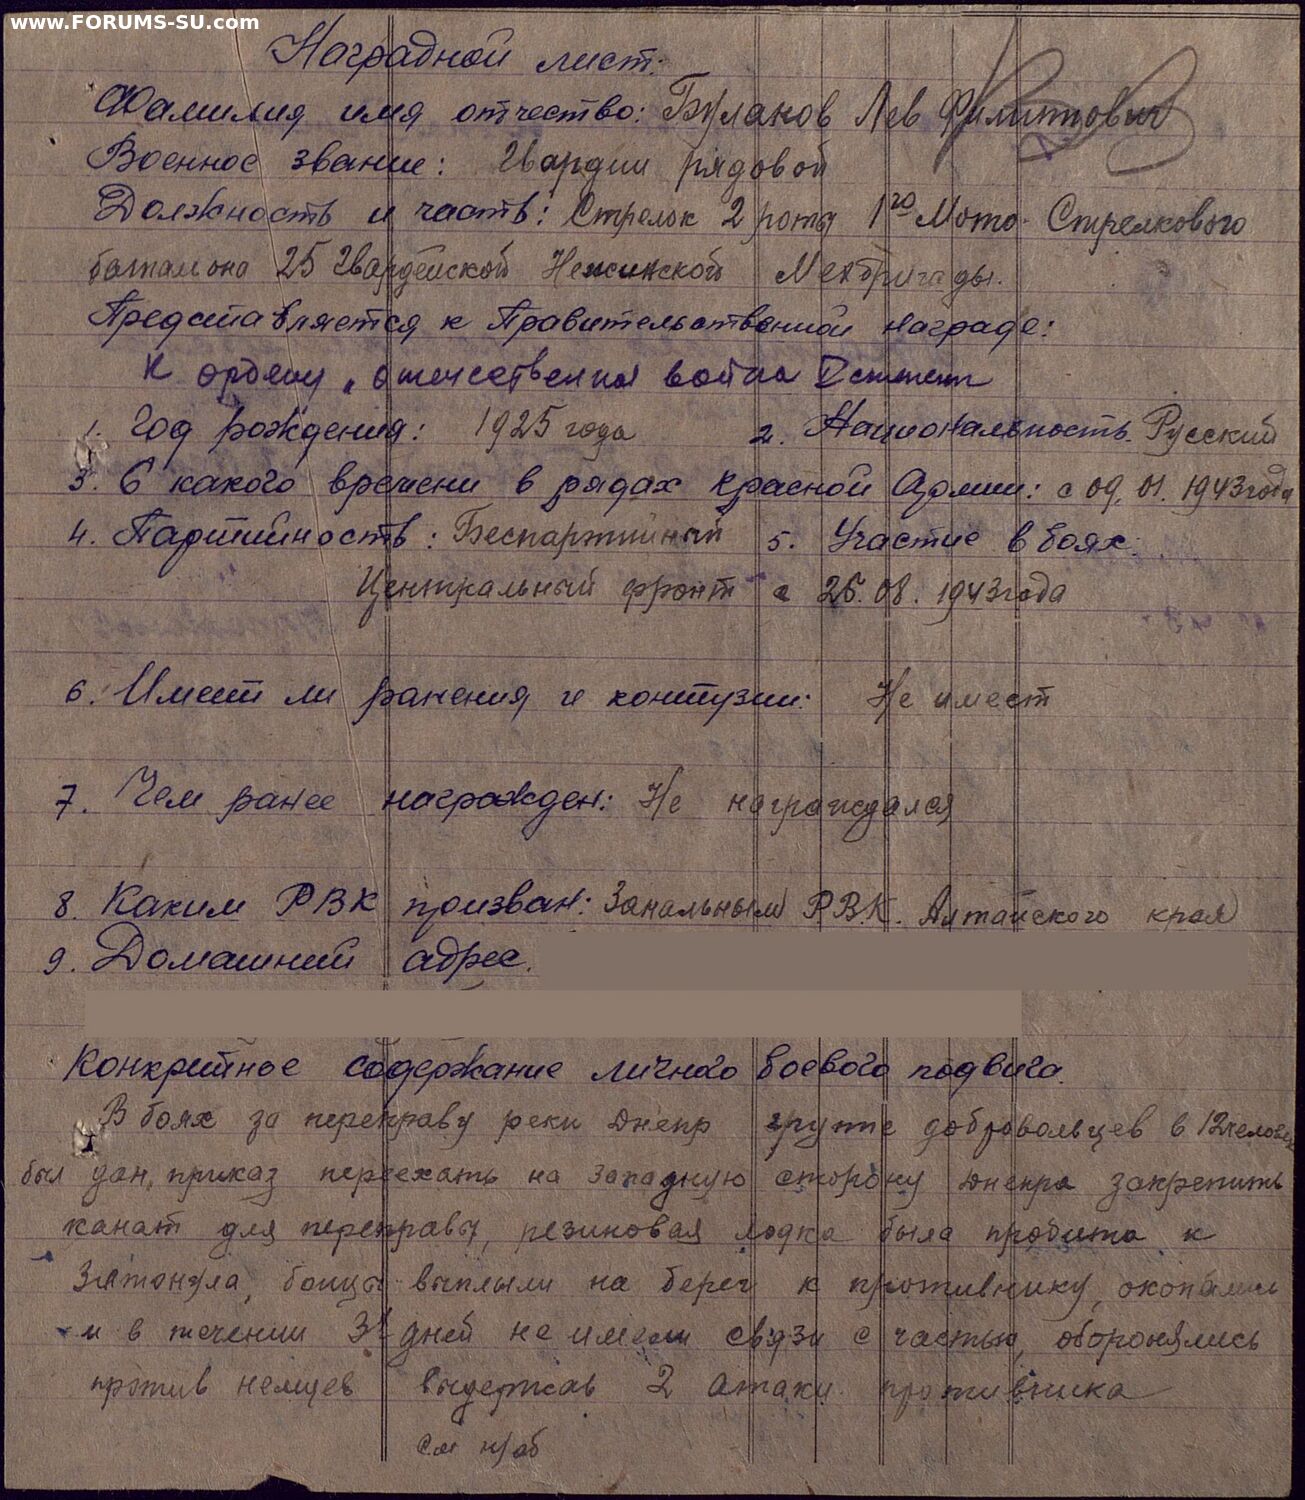 www.FORUMS-SU.com
Наградной лист.
Фамилия имя отчество: Булаков Лев Филиппович
Военное звание: Гвардии рядовой
Должность и часть: Стрелок 2 роты 1го Мото-Стрелкового
баталиона 25 Гвардейской Нежинской Мехбригады.
Представляется к Правительственной награде:
К ордену „отечественная война II степен
1. Год рождения: 1925 года 2. Национальность. Русский
3. С какого времени в рядах Красной Армии: с 09.01.1943 года
4. Партийность: Беспартийный 5. Участие в боях:
Центральный фронт с 26.08.1943 года
6. Имеет ли ранения и контузии: Не имеет
7. Чем ранее награжден: Не награждался
8. Каким РВК призван: РВК. Алтайского края
9. Домашний адрес.
Конкретное содержание личного боевого подвига.
В боях за переправу реки Днепр группе добровольцев в 12 человек
был дан приказ переехать на западную сторону Днепра закрепить
канат для переправы, резиновая лодка была пробита и
затонула, бойцы выплыли на берег к противнику, окопались
и в течении 3х дней не имели связи с частью, оборонялись
против немцев выдержав 2 атаки противника
см н/об